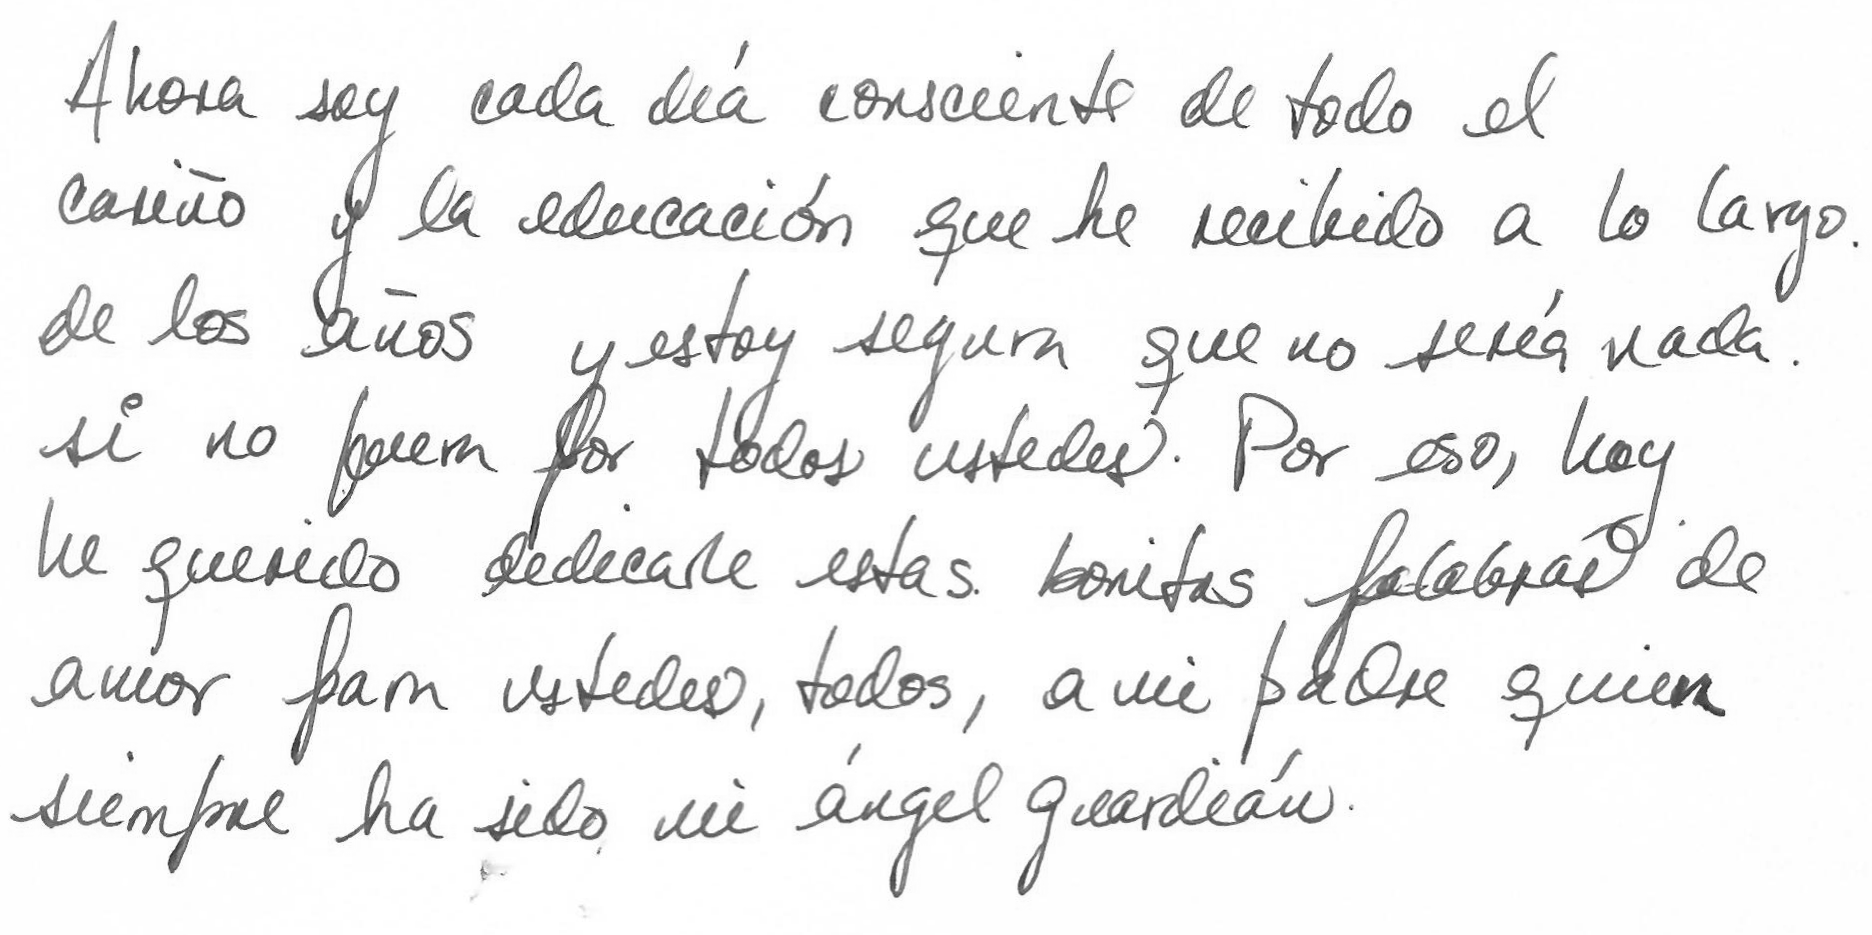 Ahora soy cada día consciente de todo el
cariño y la educación que he recibido a lo largo.
de los años y estoy segura que no sería nada.
si no fuera por todos ustedes. Por eso, hoy
he querido dedicarle estas. bonitas palabras de
amor para ustedes, todos, a mi padre quien
siempre ha sido mi ángel guardián.